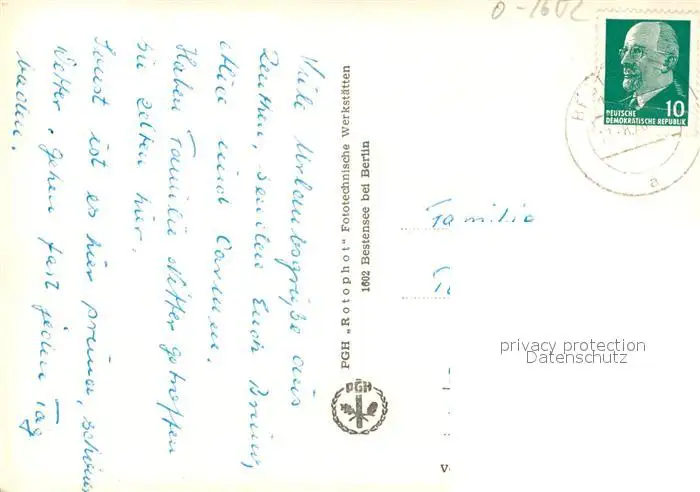 Viele Urlaubsgrüße aus
Zeuthen, senden Euch Bruni,
und Carmen.
Haben Familie getroffen
sie zelten hier.
Sonst ist es hier prima, schönes
Wetter. Gehen fast jeden Tag
baden.
PGH „Rotophot" Fototechnische Werkstätten
1602 Bestensee bei Berlin
PGH
0-1602
10
DEUTSCHE
DEMOKRATISCHE REPUBLIK
a
Familie
privacy protection
Datenschutz